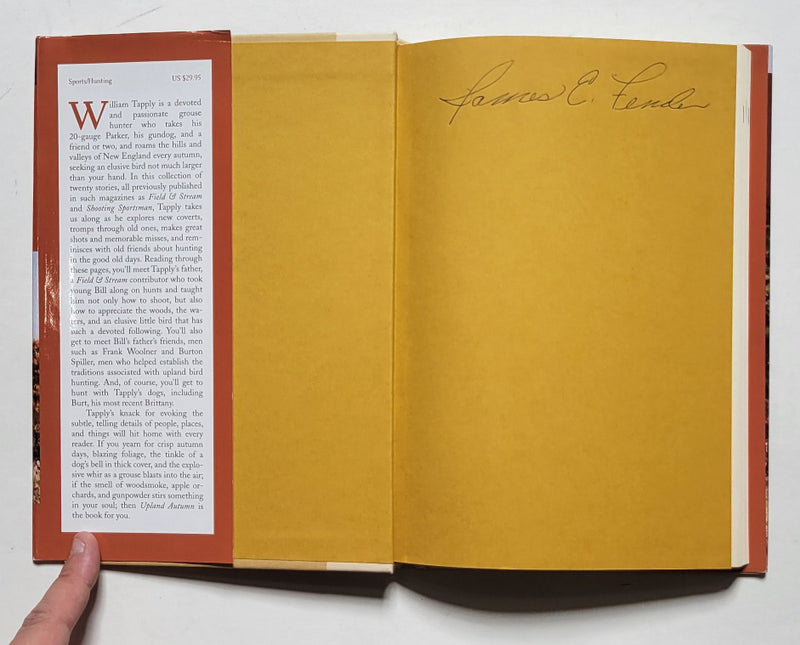 Sports/Hunting US $29.95
William Tapply is a devoted
and passionate grouse
hunter who takes his
20-gauge Parker, his gundog, and a
friend or two, and roams the hills and
valleys of New England every autumn,
seeking an elusive bird not much larger
than your hand. In this collection of
twenty stories, all previously published
in such magazines as Field & Stream
and Shooting Sportsman, Tapply takes
us along as he explores new coverts,
tromps through old ones, makes great
shots and memorable misses, and rem-
inisces with old friends about hunting
in the good old days. Reading through
these pages, you'll meet Tapply's father,
a Field & Stream contributor who took
young Bill along on hunts and taught
him not only how to shoot, but also
how to appreciate the woods, the wa-
ters, and an elusive little bird that has
such a devoted following. You'll also
get to meet Bill's father's friends, men
such as Frank Woolner and Burton
Spiller, men who helped establish the
traditions associated with upland bird
hunting. And, of course, you'll get to
hunt with Tapply's dogs, including
Burt, his most recent Brittany.
Tapply's knack for evoking the
subtle, telling details of people, places,
and things will hit home with every
reader. If you yearn for crisp autumn
days, blazing foliage, the tinkle of a
dog's bell in thick cover, and the explo-
sive whir as a grouse blasts into the air;
if the smell of woodsmoke, apple or-
chards, and gunpowder stirs something
in your soul; then Upland Autumn is
the book for you.
James E. Fender